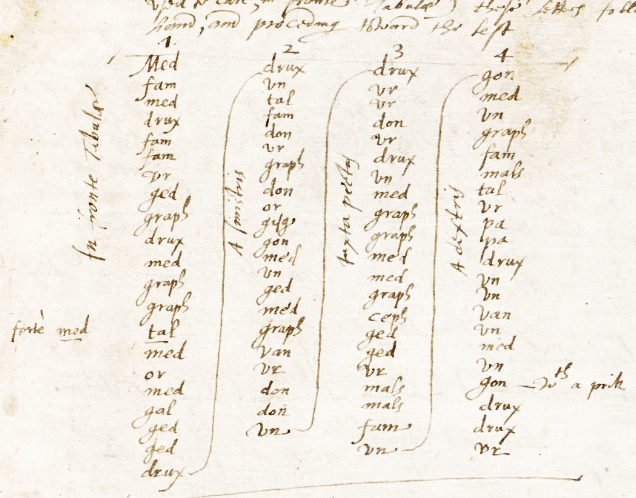 in fronte Tabulæ) these letters
hand, and proceding toward the left
1
In fronte Tabulæ
Med
fam
med
drux
fam
fam
vr
ged
graph
drux
med
graph
graph
fortè med
tal
med
or
med
gal
ged
ged
drux
2
A sinistris
drux
vn
tal
fam
don
vr
graph
don
or
gisg
gon
med
vn
ged
med
graph
van
vr
don
don
vn
3
Iuxta pectus
drux
vr
vr
don
vr
drux
vn
med
graph
graph
med
med
graph
ceph
ged
ged
vr
mals
mals
fam
vn
4
A dextris
gon
med
vn
graph
fam
mals
tal
vr
pa
pa
drux
vn
vn
van
vn
med
vn
gon — wth a prik
drux
drux
vr